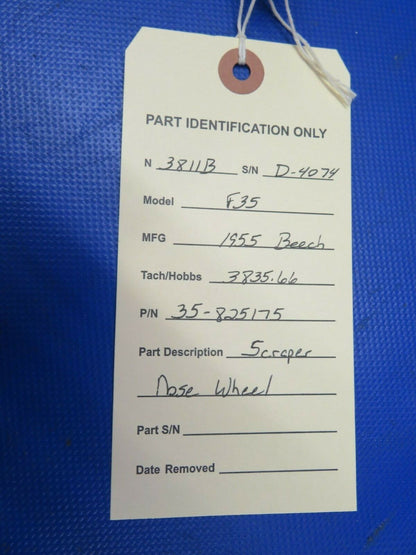 PART IDENTIFICATION ONLY
N 3811B S/N D-4074
Model F35
MFG 1955 Beech
Tach/Hobbs 3835.66
P/N 35-825175
Part Description Scraper
Nose Wheel
Part S/N
Date Removed